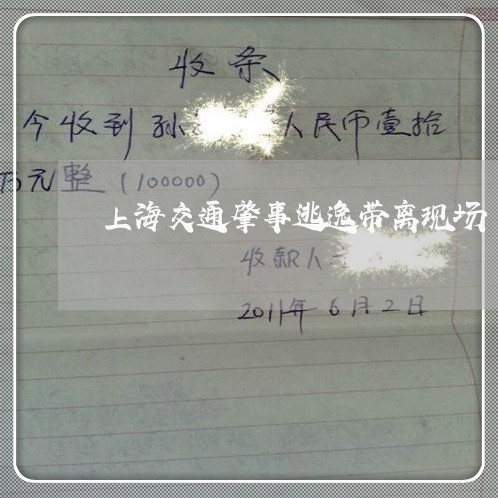 收条
今收到孙 人民币壹拾
万元整（100000）
上海交通肇事逃逸带离现场
收款人
2011年6月2日